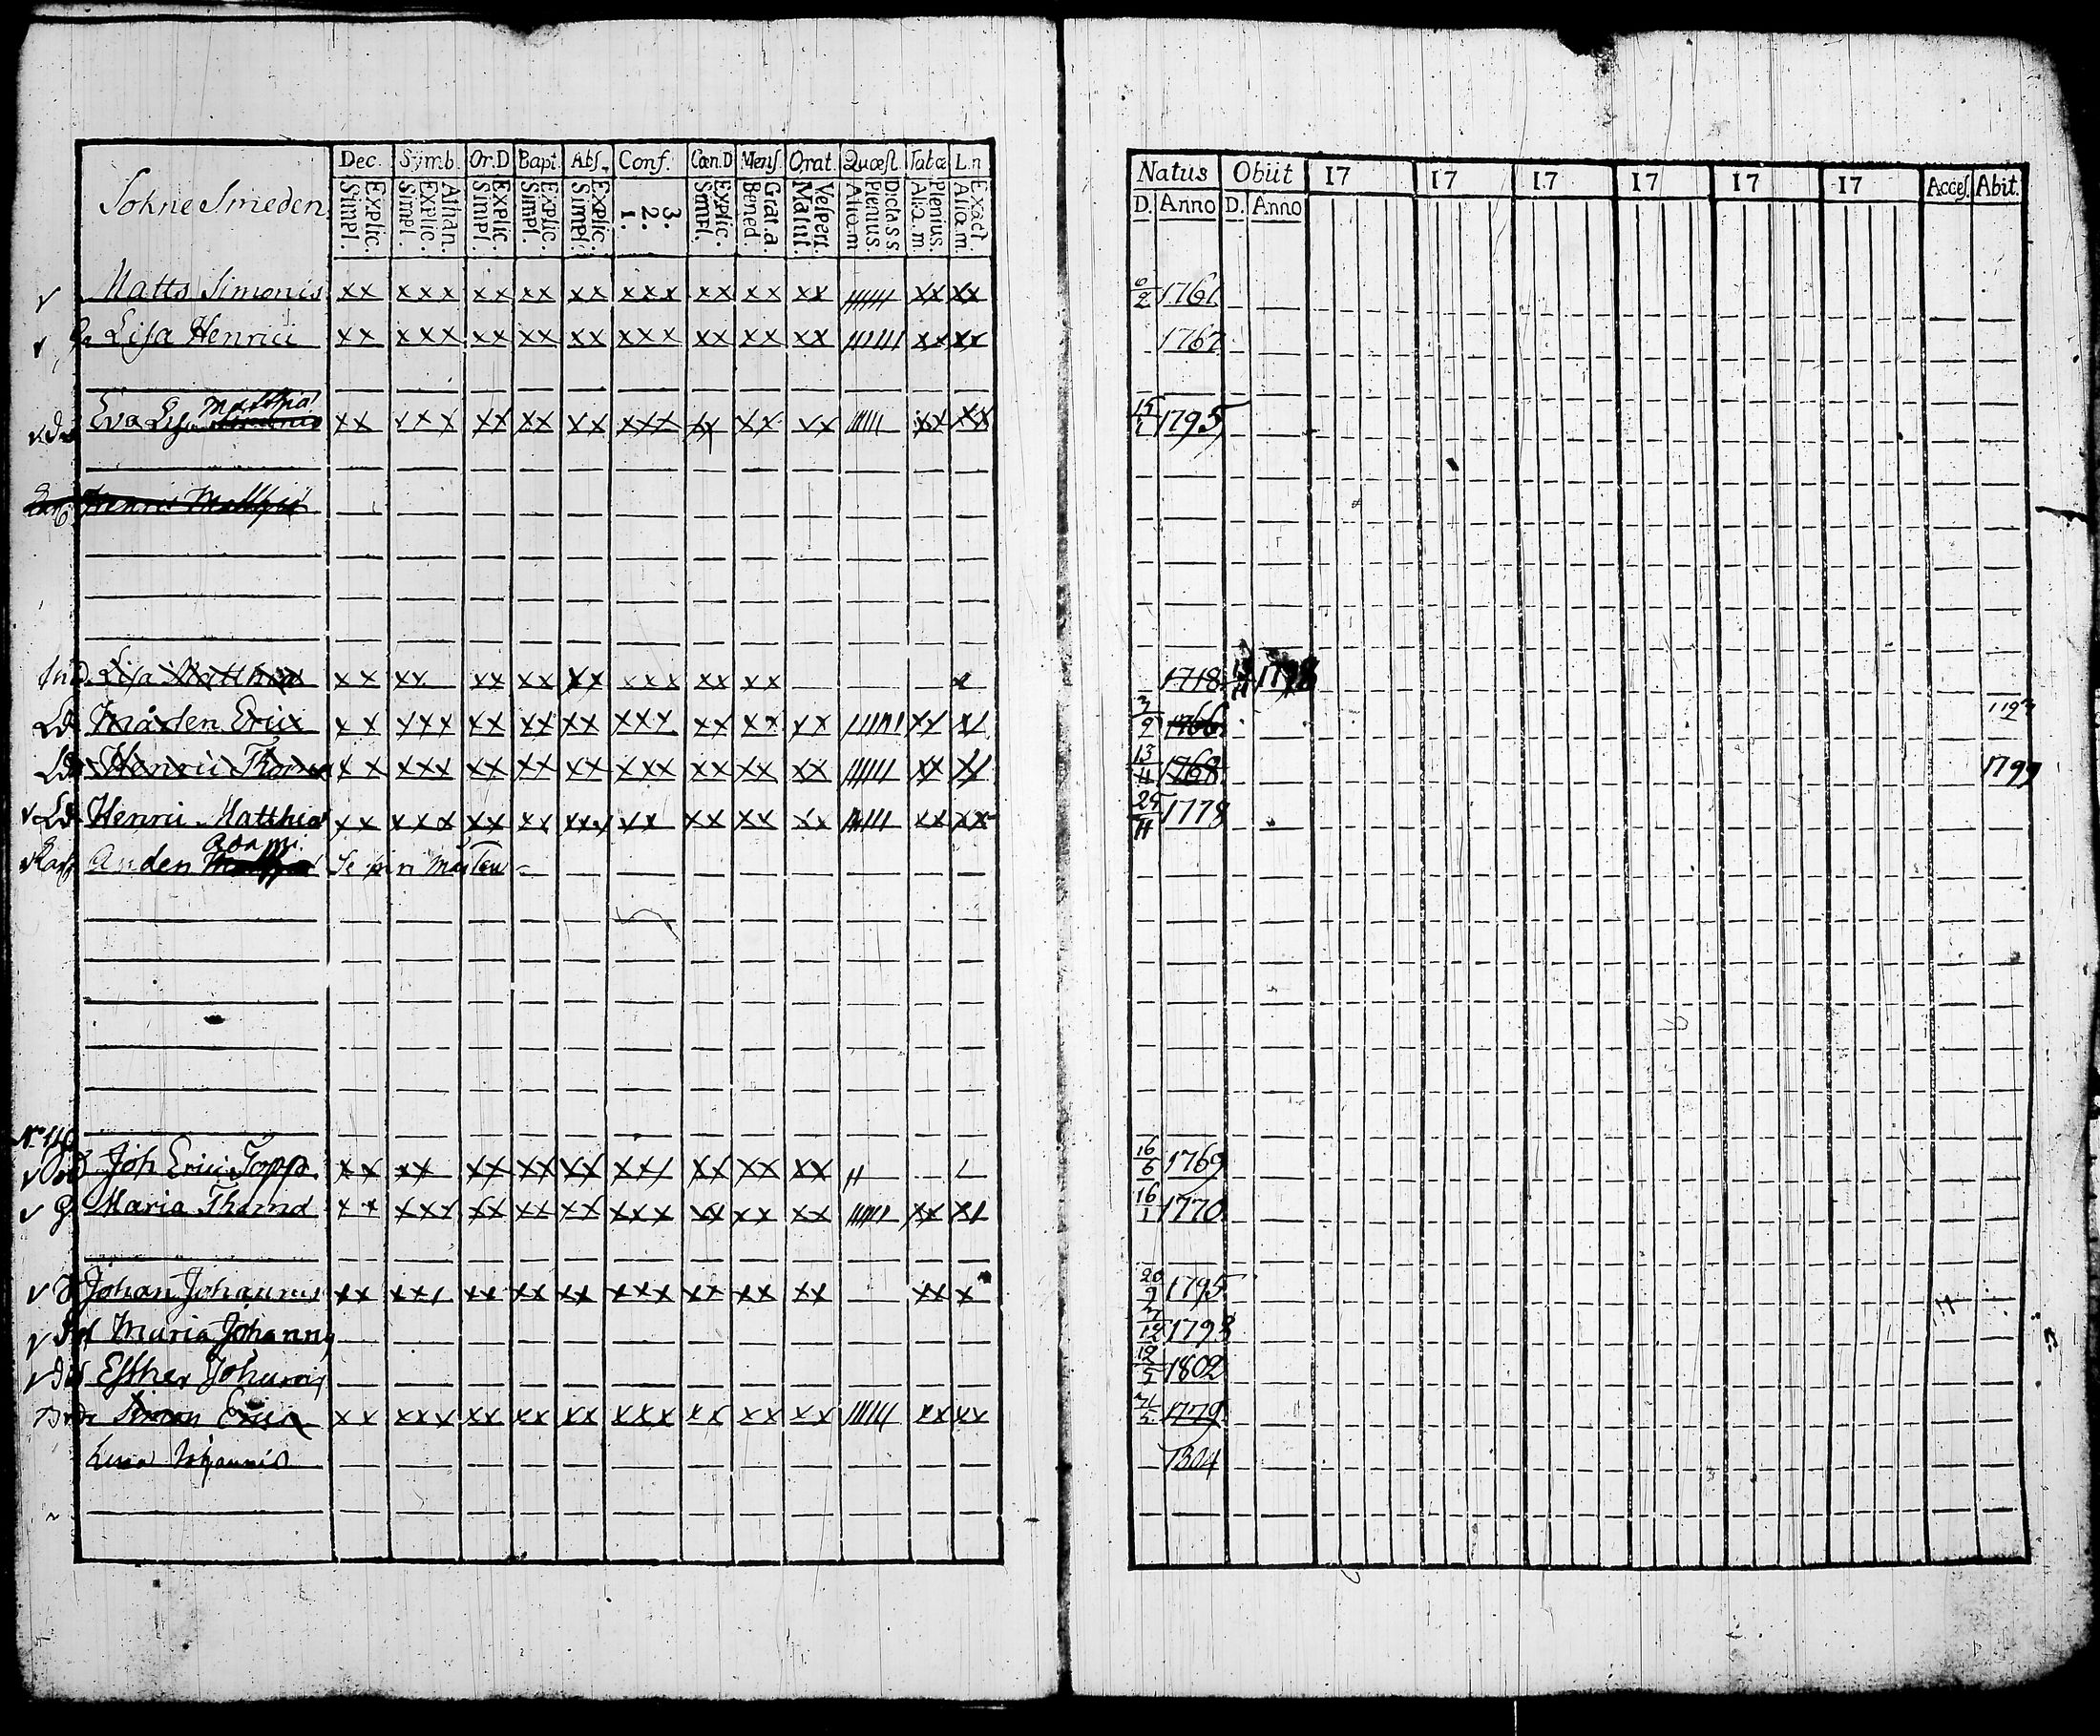 Dec. Symb. Or.D Bapt. Abs. Conf. Cœn.D Mens. Orat. Quæst. Tabæ L.n
Sokne Smeden
Explic. Simpl. Athan. Explic. Simpl. Explic. Simpl. Explic. Simpl. Explic. Simpl. 3. 2. 1. Explic. Simpl. Grat.a Bened. Vespert. Matut. Dicta.s.s. Plenius. Aliq.m Plenius. Aliq.m. Exact. Aliq.m.
Natus Obiit 17 17 17 17 17 17 Acces. Abit.
D. Anno D. Anno
Matts Simonis xx xxx xx xx xx xxx xx xx xx ////// xx xx 6/2 1761
Lisa Henrici xx xxx xx xx xx xxx xx xx xx ////// xx xx 1767
Matthiæ
Eva Lisa xx xxx xx xx xx xxx xx xx xx ///// xx xx 15/1 1795
Henric Matthiæ
Lisa Matthiæ xx xx xx xx xx xxx xx xx x 1718 1798
Mårten Erici xx xxx xx xx xx xxx xx xx xx ////// xx x/ 3/9 1766
Henrici Thomæ xx xxx xx xx xx xxx xx xx xx ////// xx xx 13/11 1768 1799
Henrici Matthiæ xx xxx xx xx xxx xx xx xx xx ////// xx xx 25/11 1778
Adami
Anden
No 116
Joh Erici Topp xx xx xx xx xx xxx xx xx xx // / 16/6 1769
Maria Thomæ xx xxx xx xx xx xxx xx xx xx ////// xx x/ 16/1 1770
Johan Johannis xx xxx xx xx xx xxx xx xx xx xx x 20/9 1795
Maria Johannis 1798
Esther Johannis 12/5 1802
Simon Erici xx xxx xx xx xx xxx xx xx xx ////// xx xx 1779
Johannis 1804